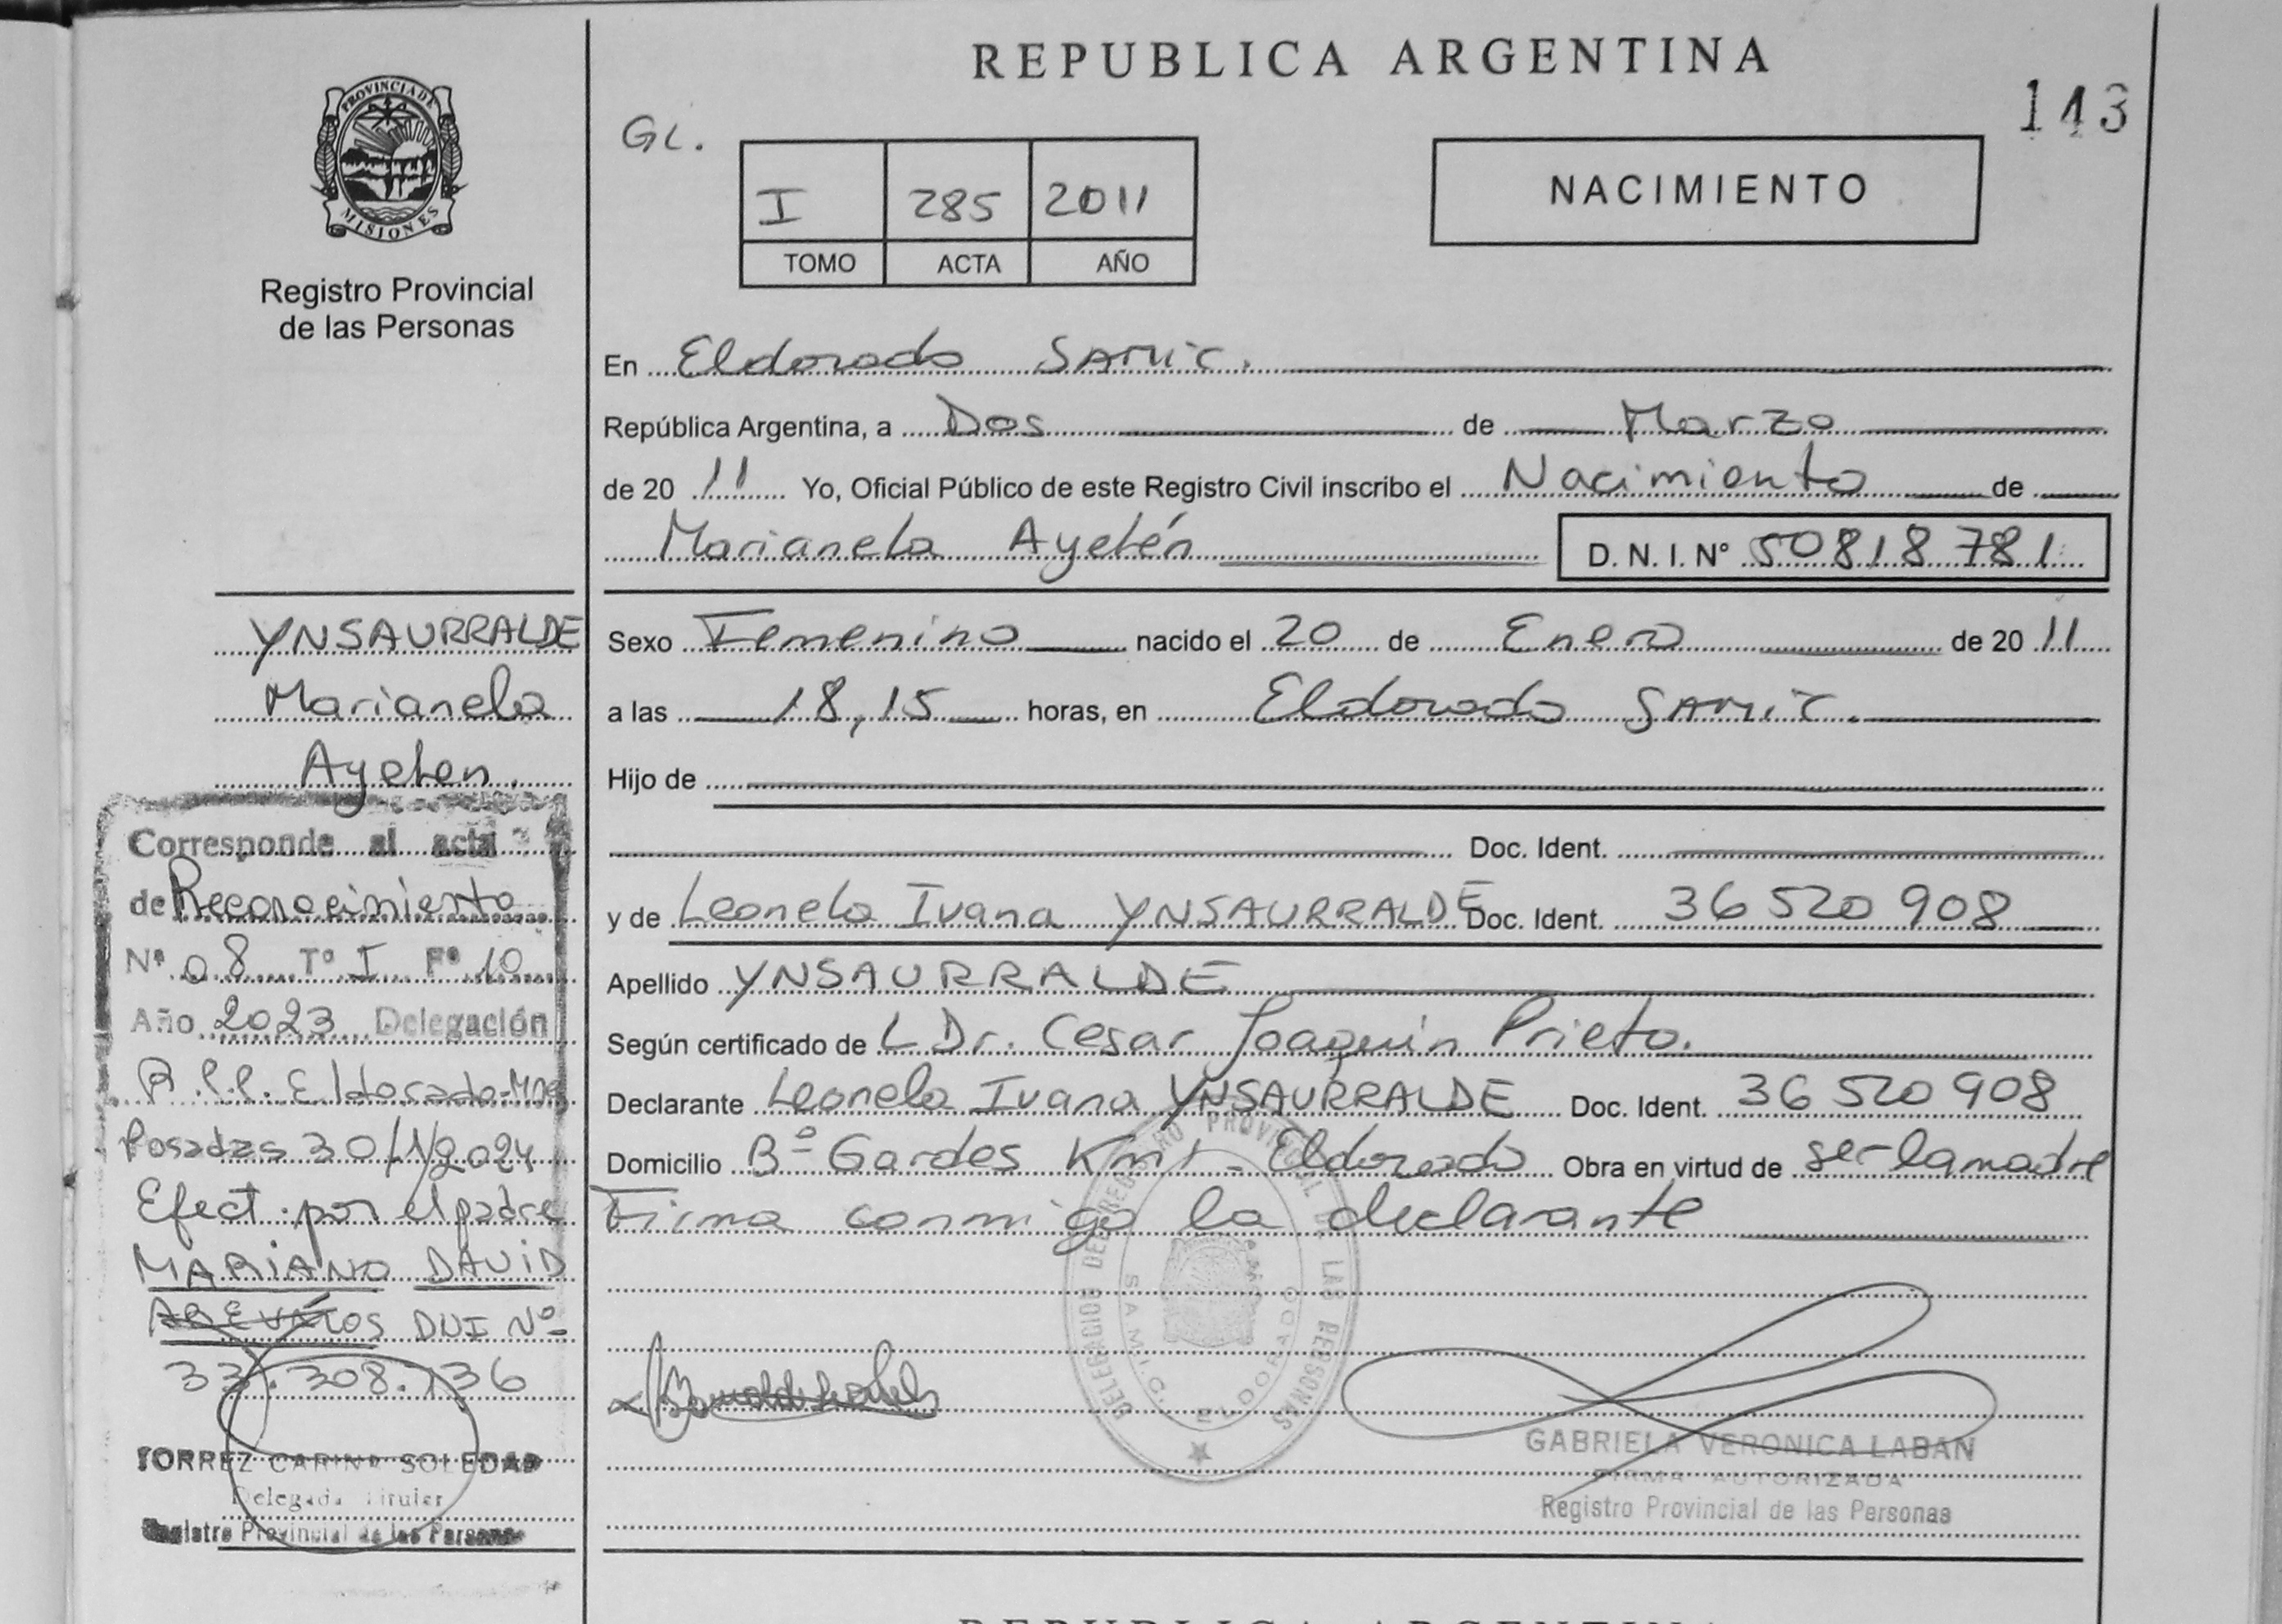 REPUBLICA ARGENTINA
143
GL.
I 285 2011
TOMO ACTA AÑO
NACIMIENTO
PROVINCIA DE
MISIONES
Registro Provincial
de las Personas
En Eldorado SAMIC.
República Argentina, a Dos de Marzo
de 20 11 Yo, Oficial Público de este Registro Civil inscribo el Nacimiento de
Marianela Ayelén D. N. I. N° 50818781
Sexo Femenino nacido el 20 de Enero de 20 11
a las 18,15 horas, en Eldorado SAMIC.
Hijo de
Doc. Ident.
y de Leonela Ivana YNSAURRALDE Doc. Ident. 36520908
Apellido YNSAURRALDE
Según certificado de L Dr. Cesar Joaquin Prieto.
Declarante Leonela Ivana YNSAURRALDE Doc. Ident. 36520908
Domicilio B° Gardes Km 1 - Eldorado Obra en virtud de ser la madre
Firma conmigo la declarante
DELEGACION DEL REGISTRO PROVINCIAL DE LAS PERSONAS
S.A.M.I.C. ELDORADO
GABRIELA VERONICA LABAN
FIRMA AUTORIZADA
Registro Provincial de las Personas
YNSAURRALDE
Marianela
Ayelen.
Corresponde al acta
de Reconocimiento
N° 08 T° I F° 10
Año 2023 Delegación
R.P.P. Eldorado-Mnes
Posadas 30/1/2024
Efect. por el padre
MARIANO DAVID
DNI N°
33.308.136
TORREZ CARINA SOLEDAD
Delegada Titular
Registro Provincial de las Personas
REPUBLICA ARGENTINA